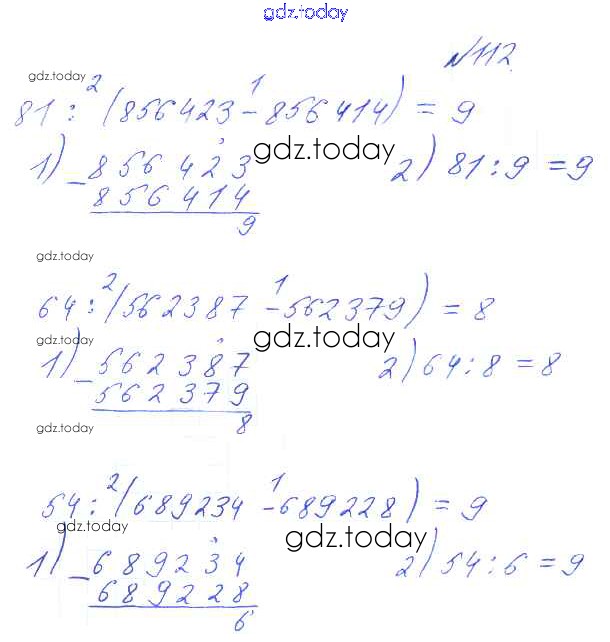 gdz.today
№112.
gdz.today
81 : (856423 - 856414) = 9
2 1
1) - 856423 gdz.today 2) 81 : 9 = 9
856414
9
gdz.today
64 : (562387 - 562379) = 8
2 1
gdz.today
1) - 562387 gdz.today 2) 64 : 8 = 8
562379
8
gdz.today
54 : (689234 - 689228) = 9
2 1
gdz.today
1) - 689234 gdz.today 2) 54 : 6 = 9
689228
6